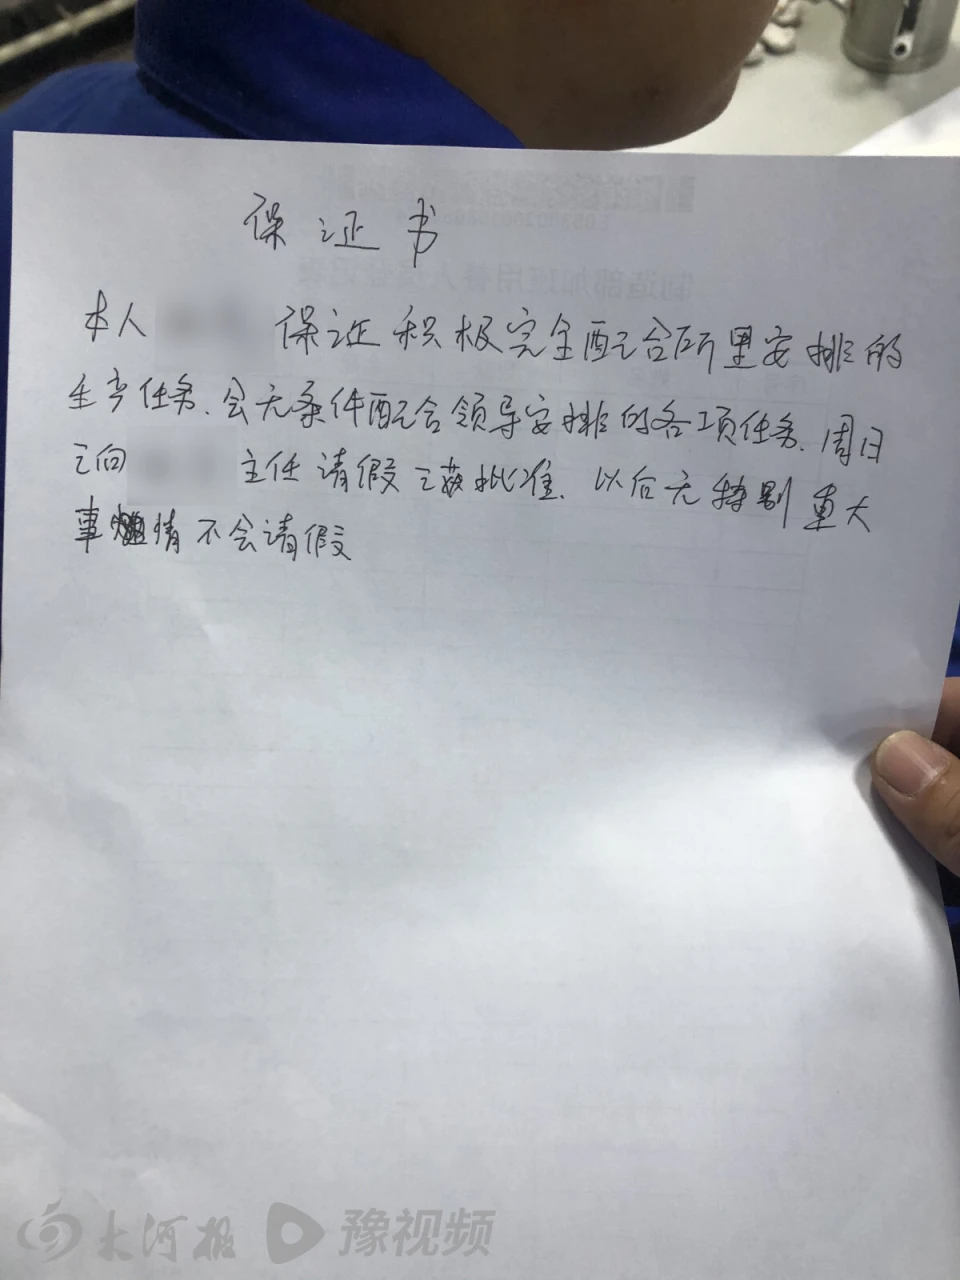 保证书
本人 保证积极完全配合所里安排的
生产任务、会无条件配合领导安排的各项任务、周日
已向 主任请假已获批准、以后无特别重大
事情不会请假
大河报 豫视频